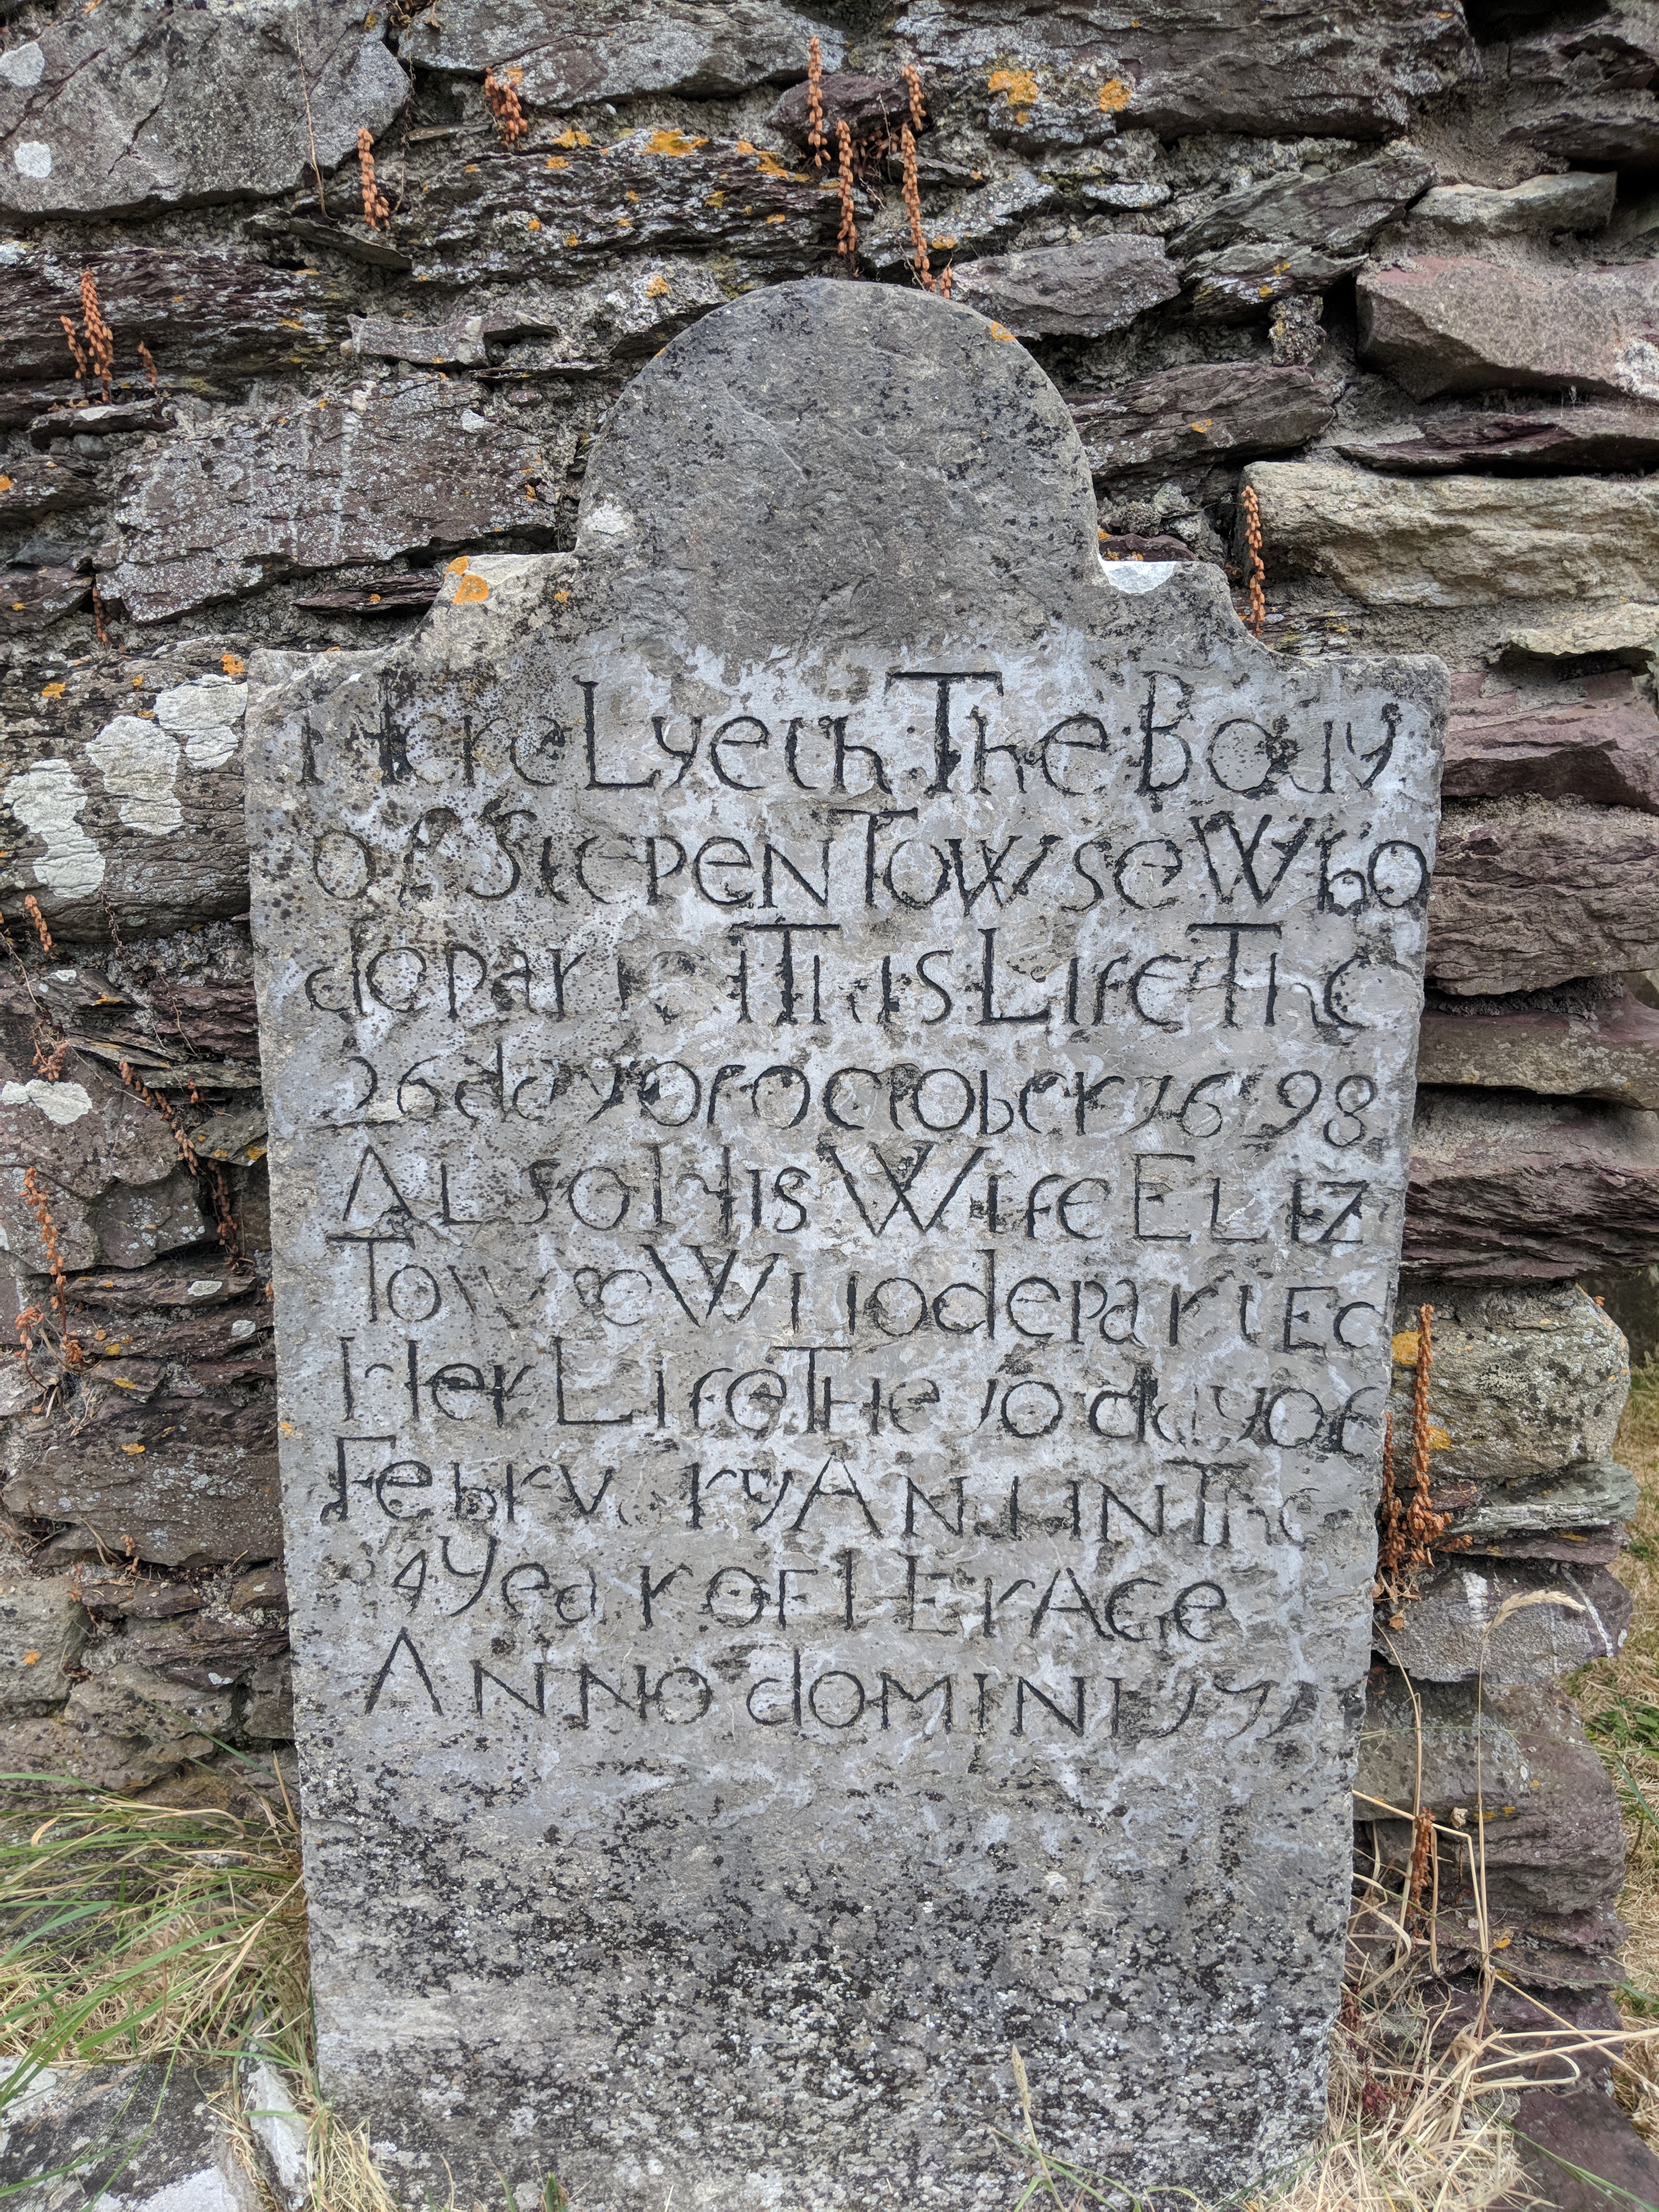 Here Lyeth The Body
of StepeN TowseWho
departed This Life The
26 day of october 1698
ALso His Wife ELIZ
Towse Who departEd
Her Life THe 10 day of
FebrvaryANd IN The
Year OF HErAGe
ANNO dOMINI